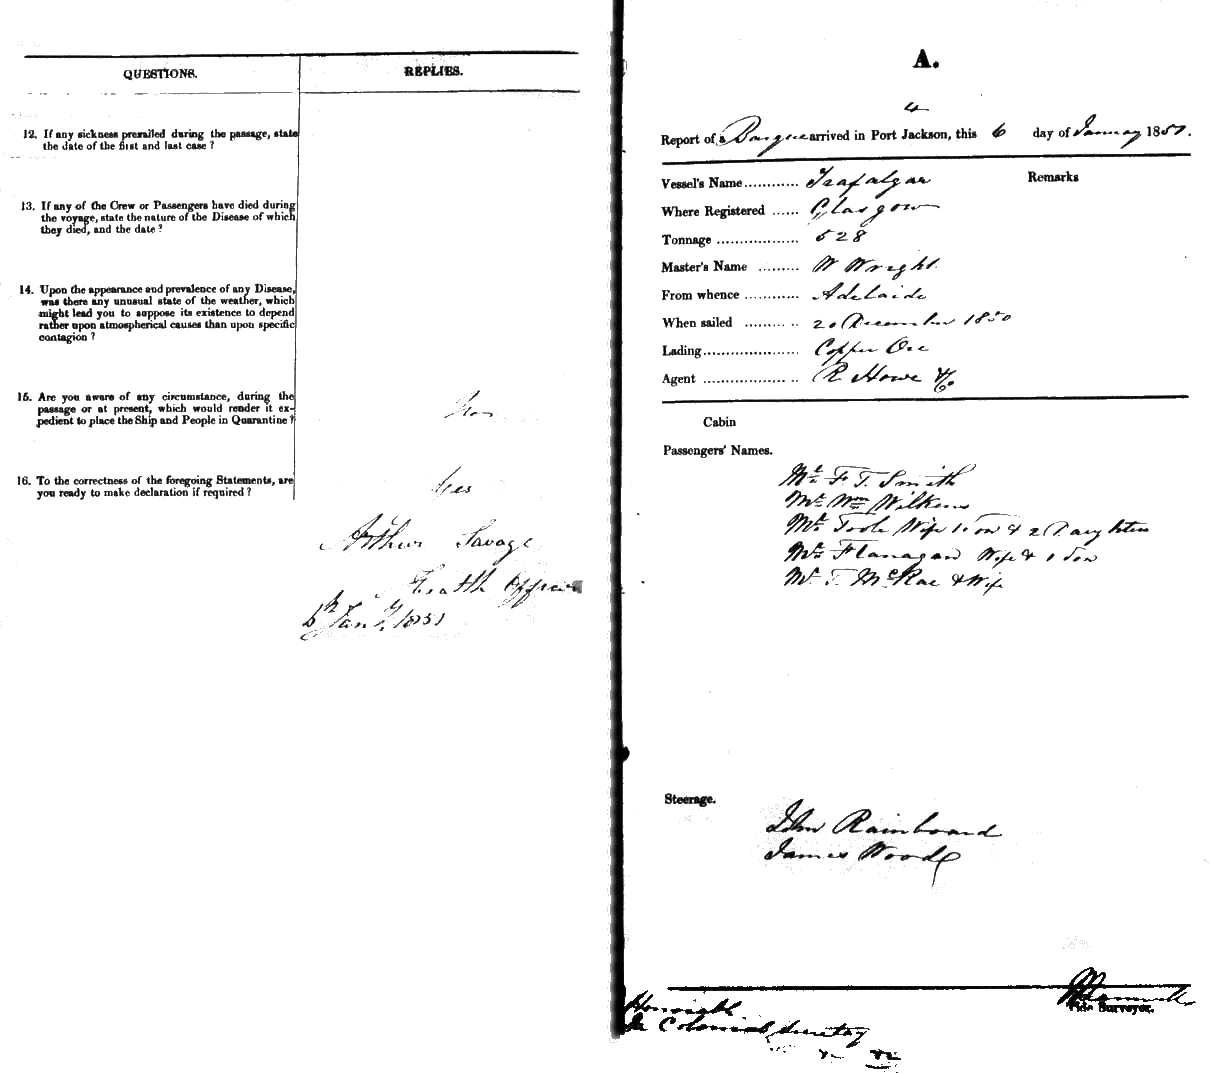 QUESTIONS.
REPLIES.
12. If any sickness prevailed during the passage, state
the date of the first and last case ?
13. If any of the Crew or Passengers have died during
the voyage, state the nature of the Disease of which
they died, and the date ?
14. Upon the appearance and prevalence of any Disease,
was there any unusual state of the weather, which
might lead you to suppose its existence to depend
rather upon atmospherical causes than upon specific
contagion ?
15. Are you aware of any circumstance, during the
passage or at present, which would render it ex-
pedient to place the Ship and People in Quarantine ?
16. To the correctness of the foregoing Statements, are
you ready to make declaration if required ?
Yes
Arthur Savage
Health Officer
6th Jany. 1851
A.
4
Report of a Barque arrived in Port Jackson, this 6 day of January 1851.
Vessel's Name............ Trafalgar
Remarks
Where Registered ...... Glasgow
Tonnage .................. 528
Master's Name ......... W Wright
From whence ............ Adelaide
When sailed ......... .. 20 December 1850
Lading..................... Copper Ore
Agent .................. .. R Howe & Co.
Cabin
Passengers' Names.
Mr F T. Smith
Mr Wm Wilkens
Mr Toole Wife 1 Son & 2 Daughters
Mr Flanagan Wife & 1 Son
Mr T. McRae & Wife
Steerage.
John Rainboard
James Wood
Tide Surveyor.
Honorable
The Colonial Secretary